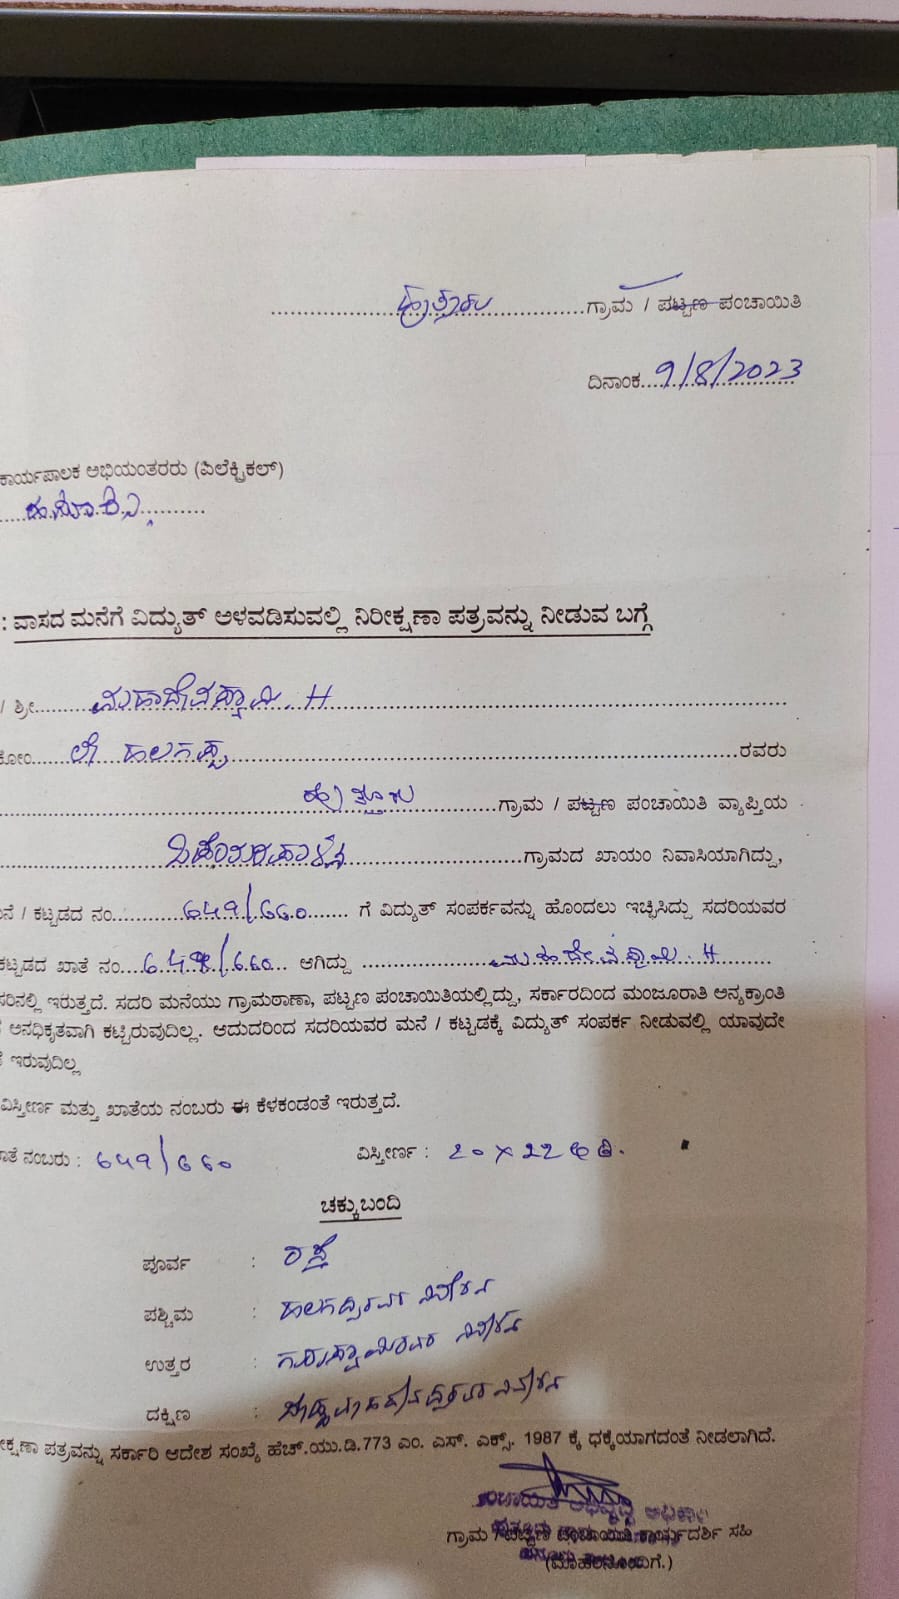 ಹುತ್ತೂರು ಗ್ರಾಮ / ಪಟ್ಟಣ ಪಂಚಾಯಿತಿ
ದಿನಾಂಕ 9/8/2023
ಕಾರ್ಯಪಾಲಕ ಅಭಿಯಂತರರು (ಎಲೆಕ್ಟ್ರಿಕಲ್)
: ವಾಸದ ಮನೆಗೆ ವಿದ್ಯುತ್ ಅಳವಡಿಸುವಲ್ಲಿ ನಿರೀಕ್ಷಣಾ ಪತ್ರವನ್ನು ನೀಡುವ ಬಗ್ಗೆ
/ ಶ್ರೀ ಮಹಾದೇವಸ್ವಾಮಿ. H
ಕೋಂ ಲೇ ರವರು
ಹುತ್ತೂರು ಗ್ರಾಮ / ಪಟ್ಟಣ ಪಂಚಾಯಿತಿ ವ್ಯಾಪ್ತಿಯ
ಗ್ರಾಮದ ಖಾಯಂ ನಿವಾಸಿಯಾಗಿದ್ದು,
ನೆ / ಕಟ್ಟಡದ ನಂ 649/660 ಗೆ ವಿದ್ಯುತ್ ಸಂಪರ್ಕವನ್ನು ಹೊಂದಲು ಇಚ್ಛಿಸಿದ್ದು ಸದರಿಯವರ
ಕಟ್ಟಡದ ಖಾತೆ ನಂ 649/660 ಆಗಿದ್ದು ಮಹದೇವಸ್ವಾಮಿ. H
ಸರಿನಲ್ಲಿ ಇರುತ್ತದೆ. ಸದರಿ ಮನೆಯು ಗ್ರಾಮಠಾಣಾ, ಪಟ್ಟಣ ಪಂಚಾಯಿತಿಯಲ್ಲಿದ್ದು, ಸರ್ಕಾರದಿಂದ ಮಂಜೂರಾತಿ ಅನ್ಯಕ್ರಾಂತಿ
ಅನಧಿಕೃತವಾಗಿ ಕಟ್ಟಿರುವುದಿಲ್ಲ. ಆದುದರಿಂದ ಸದರಿಯವರ ಮನೆ / ಕಟ್ಟಡಕ್ಕೆ ವಿದ್ಯುತ್ ಸಂಪರ್ಕ ನೀಡುವಲ್ಲಿ ಯಾವುದೇ
ಇರುವುದಿಲ್ಲ
ವಿಸ್ತೀರ್ಣ ಮತ್ತು ಖಾತೆಯ ನಂಬರು ಈ ಕೆಳಕಂಡಂತೆ ಇರುತ್ತದೆ.
ಾತೆ ನಂಬರು : 649/660 ವಿಸ್ತೀರ್ಣ : 20 X 22 ಅಡಿ.
ಚಕ್ಕುಬಂದಿ
ಪೂರ್ವ : ರಸ್ತೆ
ಪಶ್ಚಿಮ : ನಿವೇಶನ
ಉತ್ತರ : ನಿವೇಶನ
ದಕ್ಷಿಣ : ನಿವೇಶನ
ೀಕ್ಷಣಾ ಪತ್ರವನ್ನು ಸರ್ಕಾರಿ ಆದೇಶ ಸಂಖ್ಯೆ ಹೆಚ್.ಯು.ಡಿ.773 ಎಂ. ಎಸ್. ಎಕ್ಸ್. 1987 ಕ್ಕೆ ಧಕ್ಕೆಯಾಗದಂತೆ ನೀಡಲಾಗಿದೆ.
ಗ್ರಾಮ / ಪಟ್ಟಣ ಪಂಚಾಯಿತಿ ಕಾರ್ಯದರ್ಶಿ ಸಹಿ
(ಮೊಹರಿನೊಂದಿಗೆ.)